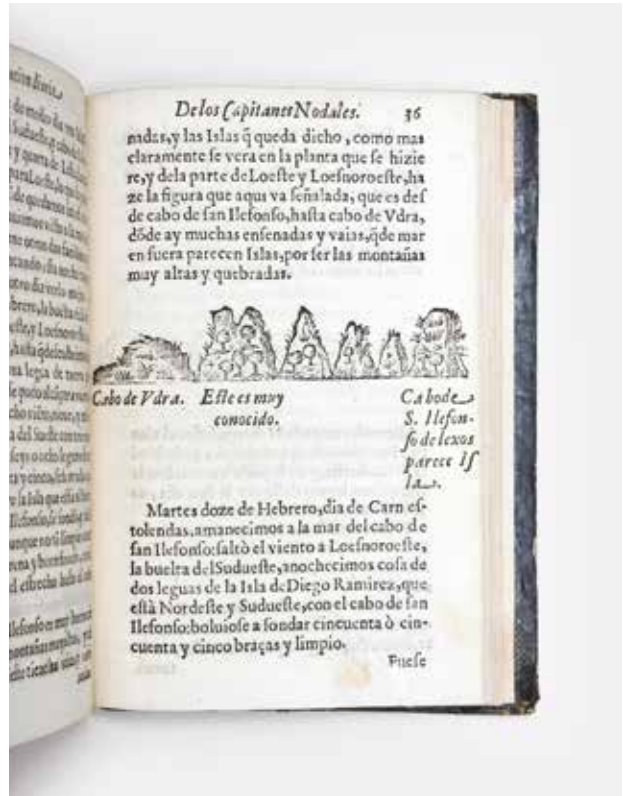 De los Capitanes Nodales. 36
nadas, y las Islas q̃ queda dicho, como mas
claramente ſe vera en la planta que ſe hizie
re, y dela parte de Loeſte y Loeſnoroeſte, ha
ze la figura que aqui va ſeñalada, que es deſ
de cabo de ſan Ilefonſo, haſta cabo de Vdra,
dõde ay muchas enſenadas y vaias, q̃de mar
en fuera parecen Islas, por ſer las montañas
muy altas y quebradas.
Cabo de Vdra.
Eſte es muy
conocido.
Cabo de
S. Ilefon-
ſo de lexos
parece Iſ
la.
Martes doze de Hebrero, dia de Carneſ-
tolendas, amanecimos a la mar del cabo de
ſan Ilefonſo: ſaltò el viento a Loeſnoroeſte,
la buelta del Sudueſte, anochecimos coſa de
dos leguas de la Isla de Diego Ramirez, que
eſtà Nordeſte y Sudueſte, con el cabo de ſan
Ilefonſo: boluioſe a ſondar cincuenta ò cin-
cuenta y cinco braças y limpio.
Fueſe